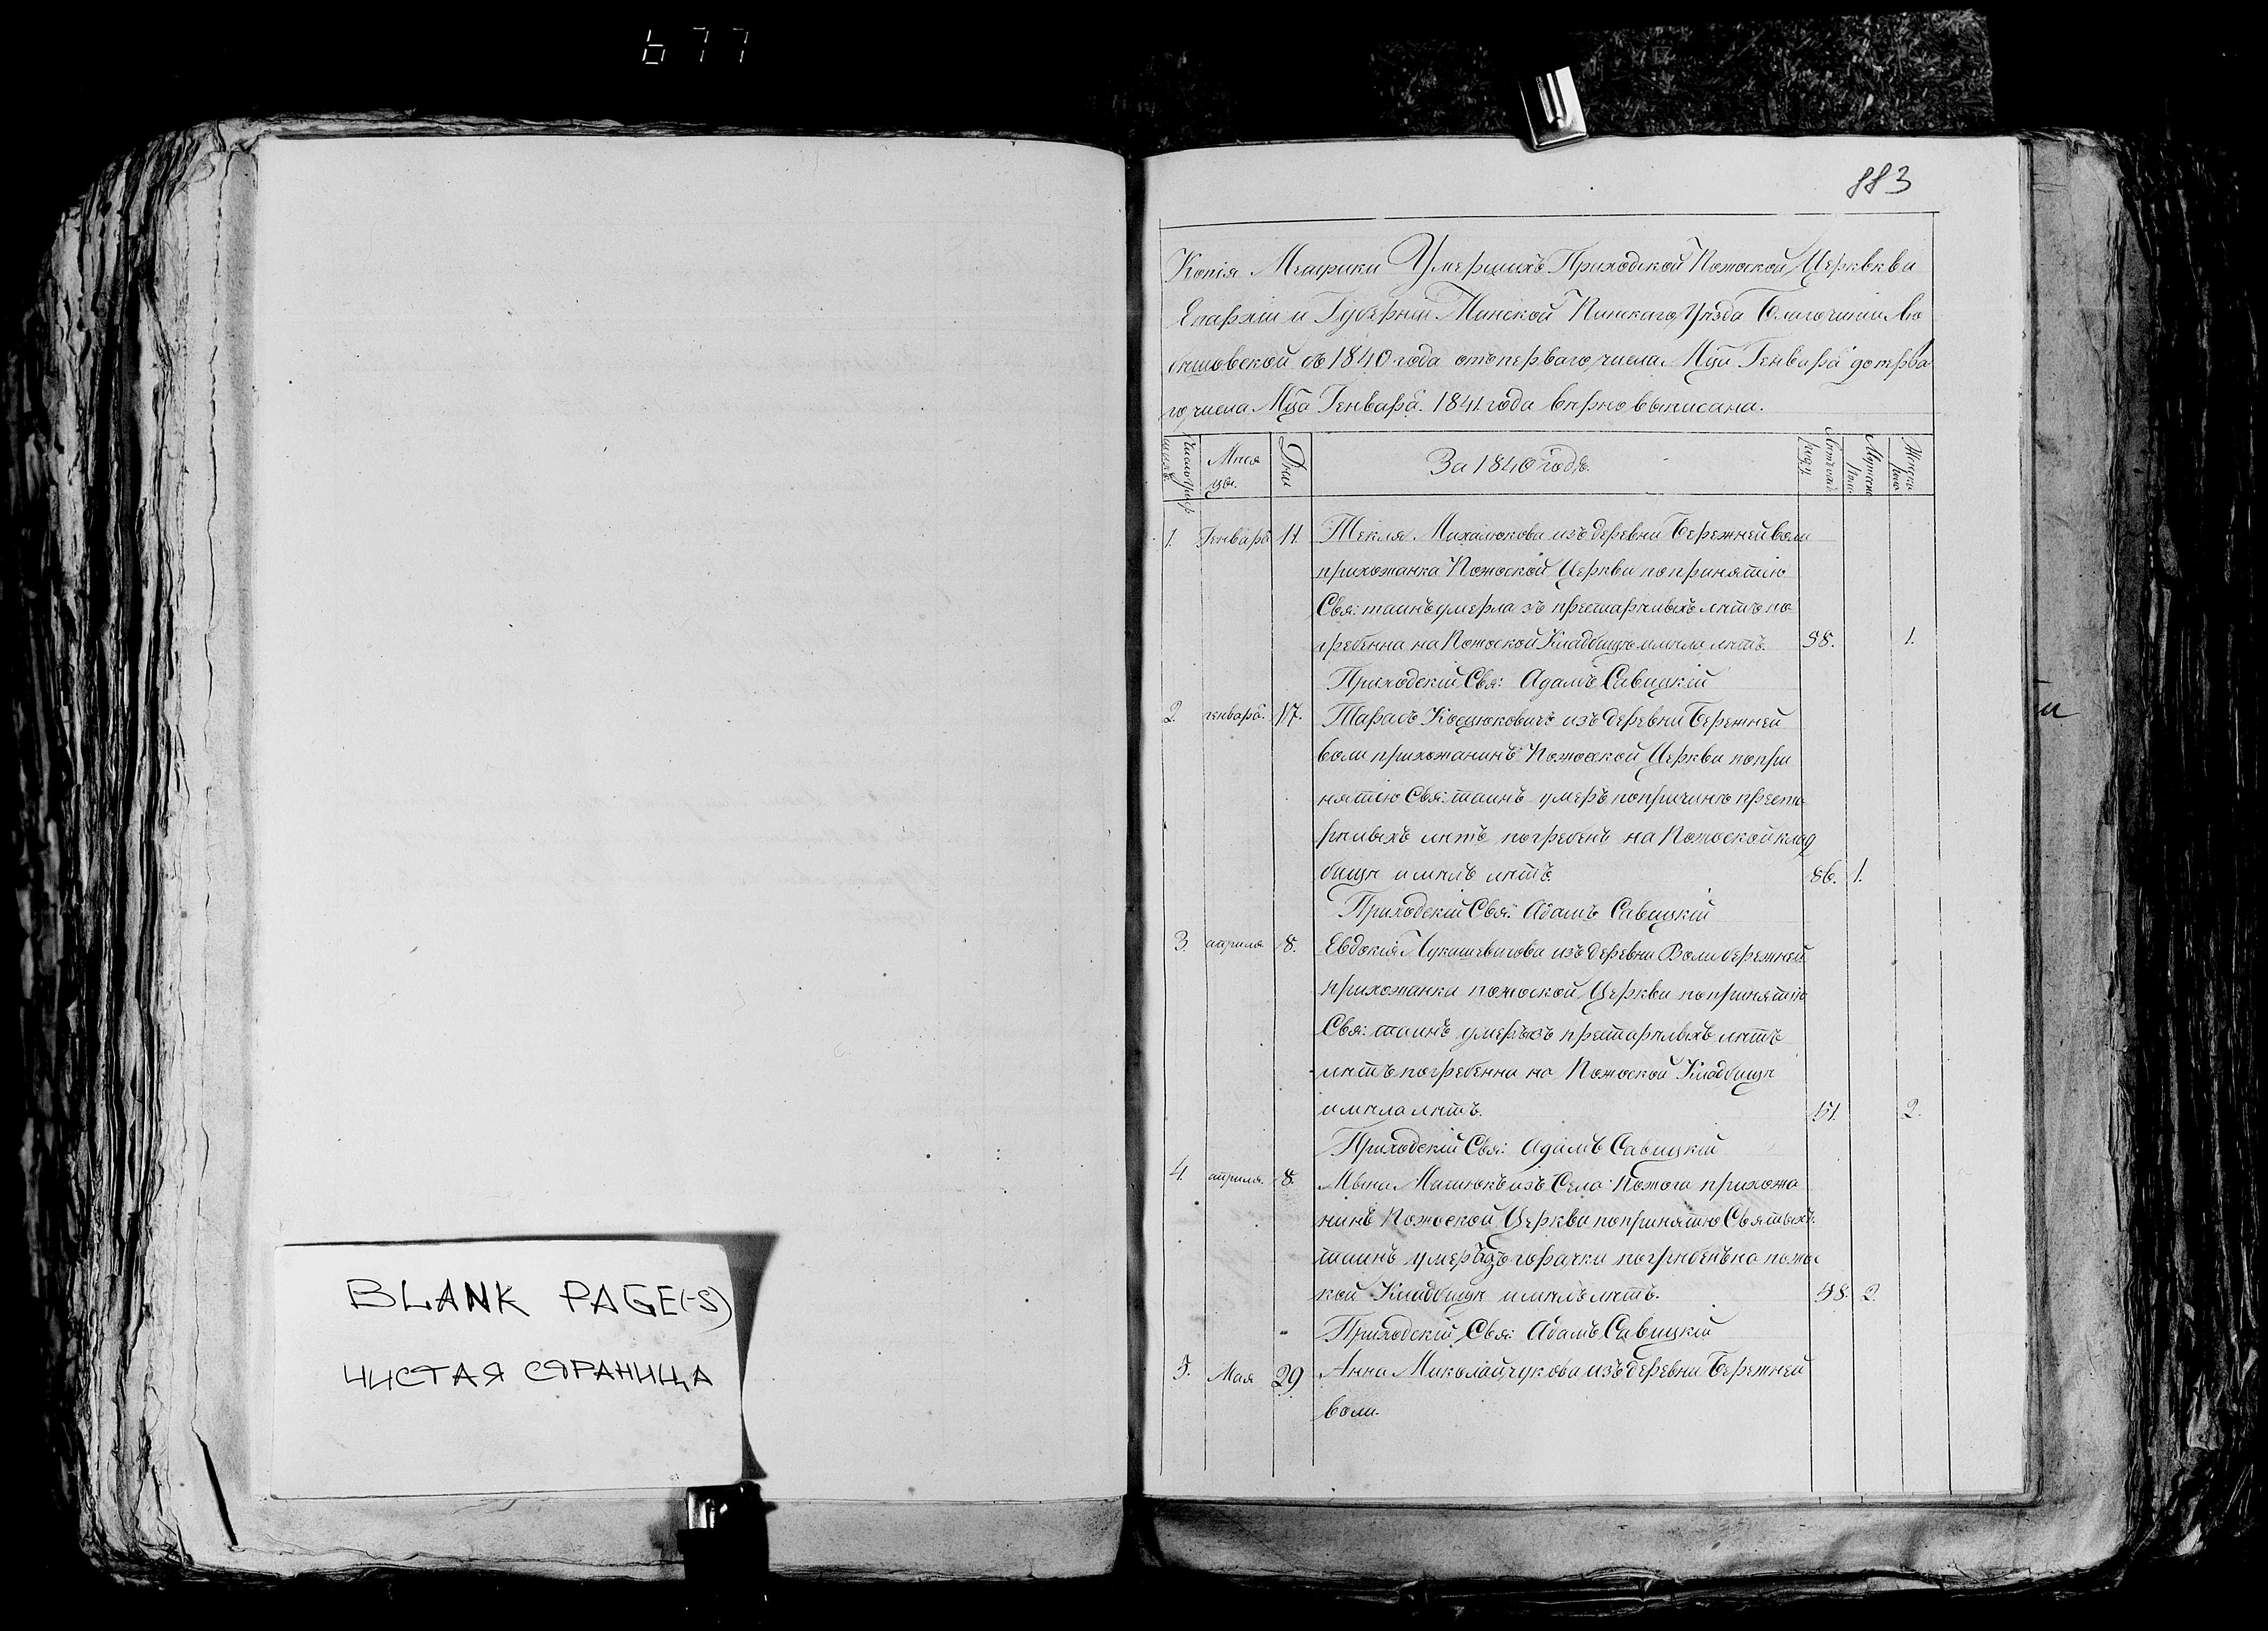 677
883
Копія Метрики Умершихъ Приходской Пожоской Церквкви
Епархіи и Губерніи Минской Пинскаго Уѣзда Благочинія Лю
бешовской съ 1840 года отъ перваго числа Мца Генвара до перва
го числа Мца Генвара. 1841 года вѣрно выписана.
Число умер
шихъ
Мѣся
цы.
Дни
За 1840 годъ.
Лѣтъ отъ
роду
Мужеска
пола
Женска
пола
1. Генвара 11. Текля Михалюкова изъ деревни Бережней воли
прихожанка Пожоской Церкви по принятію
Свя: таинъ умерла зъ престарѣлыхъ лѣтъ по
гребенна на Пожоской Кладбищѣ имѣла лѣтъ. 88. 1.
Приходскій Свя: Адамъ Савицкій
2. генвара. 17. Тарасъ Коцюковичъ изъ деревни Бережней
воли прихожанинъ Пожоской Церкви по при
нятію Свя: таинъ умеръ попричинѣ преста
рѣлыхъ лѣтъ погребенъ на Пожоской клад
бищѣ имѣлъ лѣтъ. 86. 1.
Приходскій Свя: Адамъ Савицкій
3. априля 8. Евдокія Лукашевичова изъ деревни Воли бережней
прихожанка пожоской Церкви по принятію
Свя: таинъ умеръ изъ престарѣлыхъ лѣтъ
лѣтъ погребенна на Пожоской Кладбищѣ
имѣла лѣтъ. 51. 2.
Приходскій Свя: Адамъ Савицкій
4. априля. 8. Мина Малюкъ изъ Села Пожога прихожа
нинъ Пожоской Церкви по принятію Святыхъ
таинъ умеръ изъ горачки погребенъ на пожос
кой Кладбищѣ имѣлъ лѣтъ. 58. 2.
Приходскій Свя: Адамъ Савицкій
5. Мая 29 Анна Миколайчукова изъ деревни Бережней
воли.
BLANK PAGE(-S)
ЧИСТАЯ СТРАНИЦА